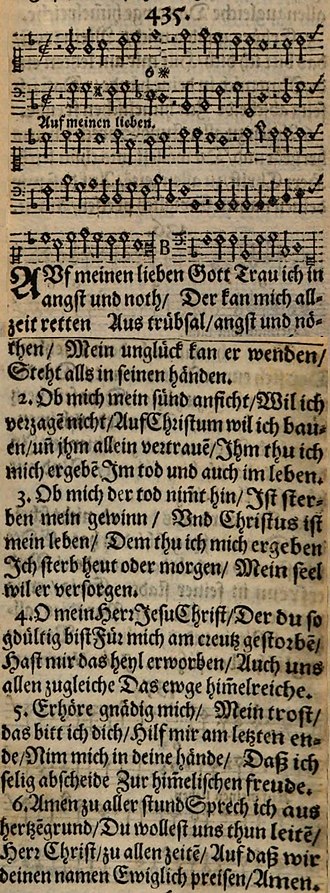 435.
6
Auf meinen lieben.
B
AUf meinen lieben Gott Trau ich in
angst und noth/ Der kan mich all-
zeit retten Aus trübsal/angst und nö-
then/ Mein unglück kan er wenden/
Steht alls in seinen händen.
2. Ob mich mein sünd anficht/Wil ich
verzagē nicht/Auf Christum wil ich bau-
en/uñ jhm allein vertrauē/Jhm thu ich
mich ergebē Jm tod und auch im leben.
3. Ob mich der tod nim̄t hin/ Jst ster-
ben mein gewinn/ Und Christus ist
mein leben/ Dem thu ich mich ergeben
Jch sterb heut oder morgen/ Mein seel
wil er versorgen.
4. O mein Herr Jesu Christ/Der du so
gdültig bist Für mich am creutz gestorbē/
Hast mir das heyl erworben/ Auch uns
allen zugleiche Das ewge him̄elreiche.
5. Erhöre gnädig mich/ Mein trost/
das bitt ich dich/Hilf mir am letzten en-
de/Nim mich in deine hände/ Daß ich
selig abscheide Zur him̄elischen freude.
6. Amen zu aller stund Sprech ich aus
hertzēgrund/Du wollest uns thun leitē/
Herr Christ/zu allen zeitē/ Auf daß wir
deinen namen Ewiglich preisen/Amen.